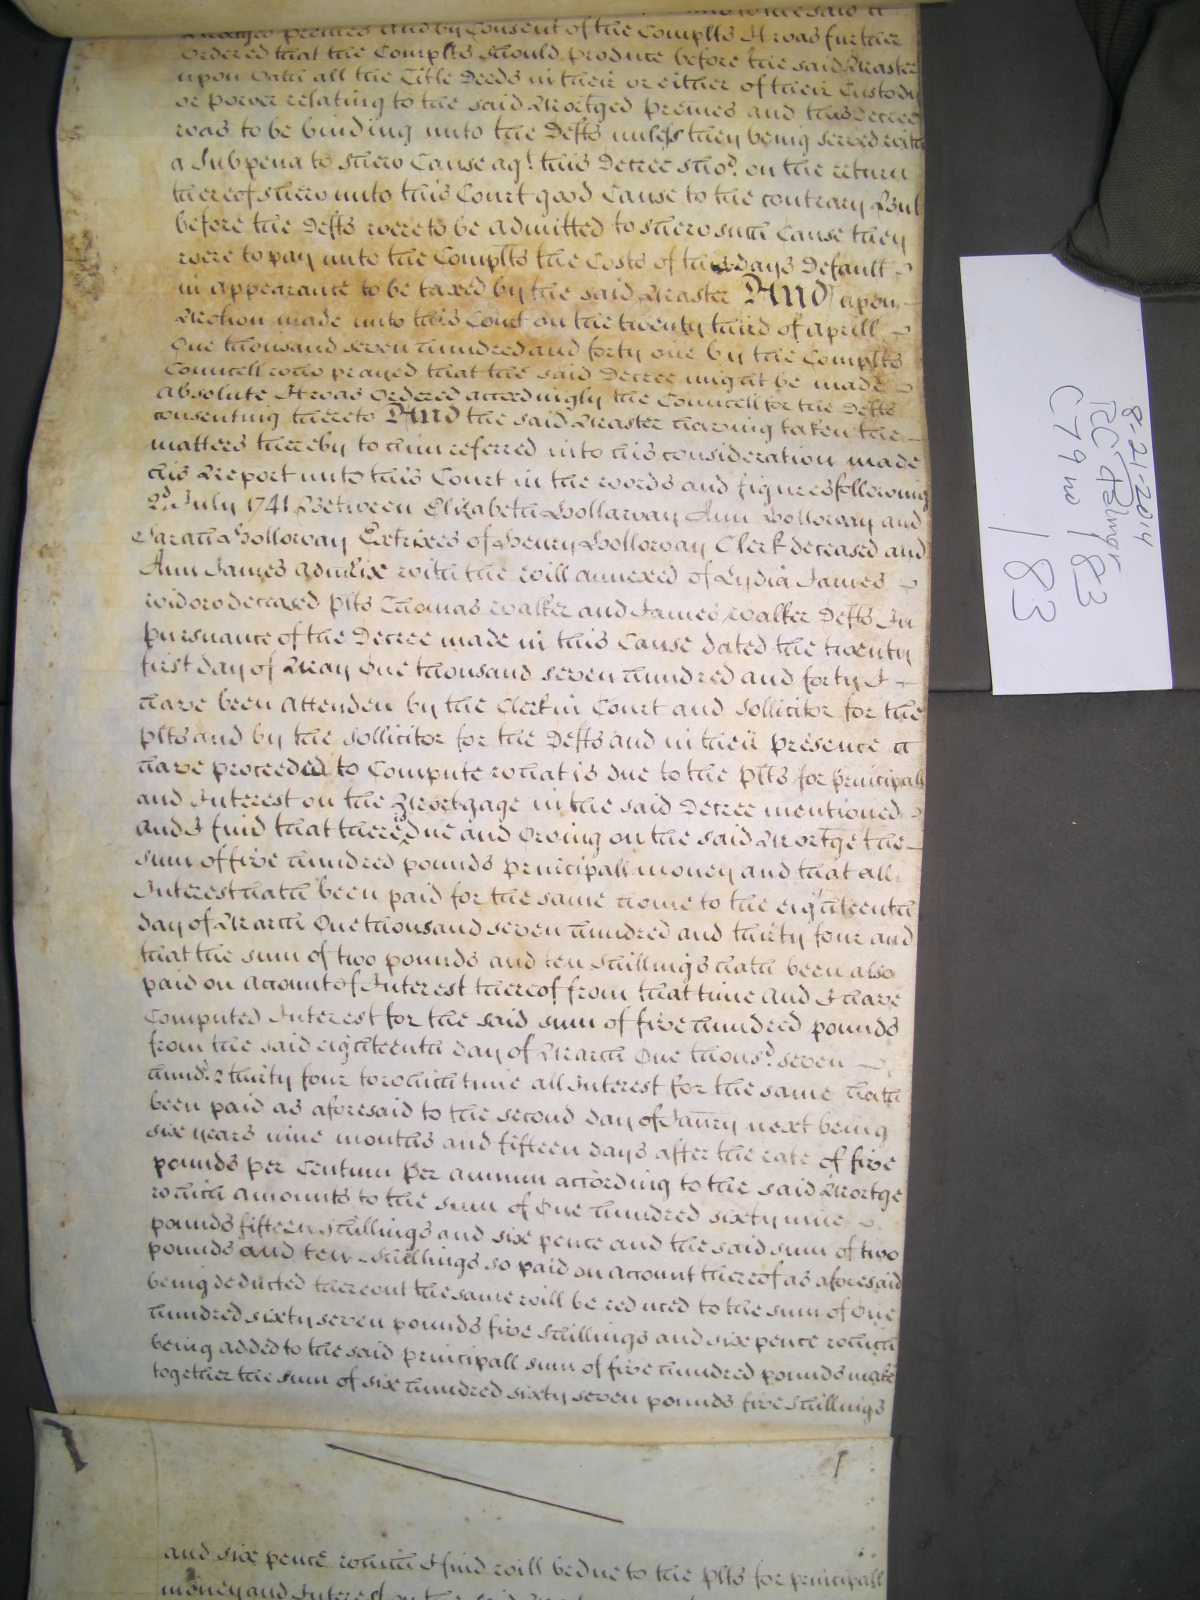 and to the said
Mortged premes And by Consent of the Complts It was further
Ordered that the Complts should produce before the said Master
upon Oath all the Title Deeds in their or either of their Custody
or power relating to the said Mortged premes and this Decree
was to be binding unto the Defts unless they being served with
a Subpena to shew Cause agt. this Decree shod. on the return
thereof shew unto this Court good Cause to the contrary But
before the Defts were to be admitted to shew such Cause they
were to pay unto the Complts the Costs of this days Default
in appearance to be taxed by the said Master And upon
Motion made unto this Court on the twenty third of Aprill
One thousand seven hundred and forty one by the Complts
Councell who prayed that the said Decree might be made
absolute It was Ordered accordingly the Councell for the Defts
consenting thereto And the said Master having taken the
matters thereby to him referred into his consideration made
his Report unto this Court in the words and figures following
2d. July 1741 Between Elizabeth Hollaway Ann Holloway and
Sarah Holloway Extrixes of Henry Holloway Clerk deceased and
Ann James admtrix with the will annexed of Lydia James
widow deceased plts Thomas Walker and James Walker Defts In
pursuance of the Decree made in this Cause dated the twenty
first day of May One thousand seven hundred and forty I
have been attended by the Clerk in Court and Sollicitor for the
plts and by the Sollicitor for the Defts and in their presence
have proceeded to Compute what is due to the plts for principall
and Interest on the Mortgage in the said Decree mentioned
And I find that there is due and Owing on the said Mortge the
sum of five hundred pounds principall money and that all
Interest hath been paid for the same home to the eighteenth
day of March One thousand seven hundred and thirty four and
that the sum of two pounds and ten shillings hath been also
paid on account of Interest thereof from that time And I have
Computed Interest for the said sum of five hundred pounds
from the said eighteenth day of March One thousd. seven
hundd. & thirty four to which time all Interest for the same hath
been paid as aforesaid to the second day of Janry next being
six years nine months and fifteen days after the rate of five
pounds per Centum per annum according to the said Mortge
which amounts to the sum of One hundred sixty nine
pounds fifteen shillings and six pence and the said sum of two
pounds and ten shillings so paid on account thereof as aforesaid
being deducted thereout the same will be reduced to the sum of One
hundred sixty seven pounds five shillings and six pence which
being added to the said principall sum of five hundred pounds make
together the sum of six hundred sixty seven pounds five shillings
and six pence which I find will be due to the plts for principall
money and Interest on the said
8-21-2014
RC Palmer
C79 no 183
183